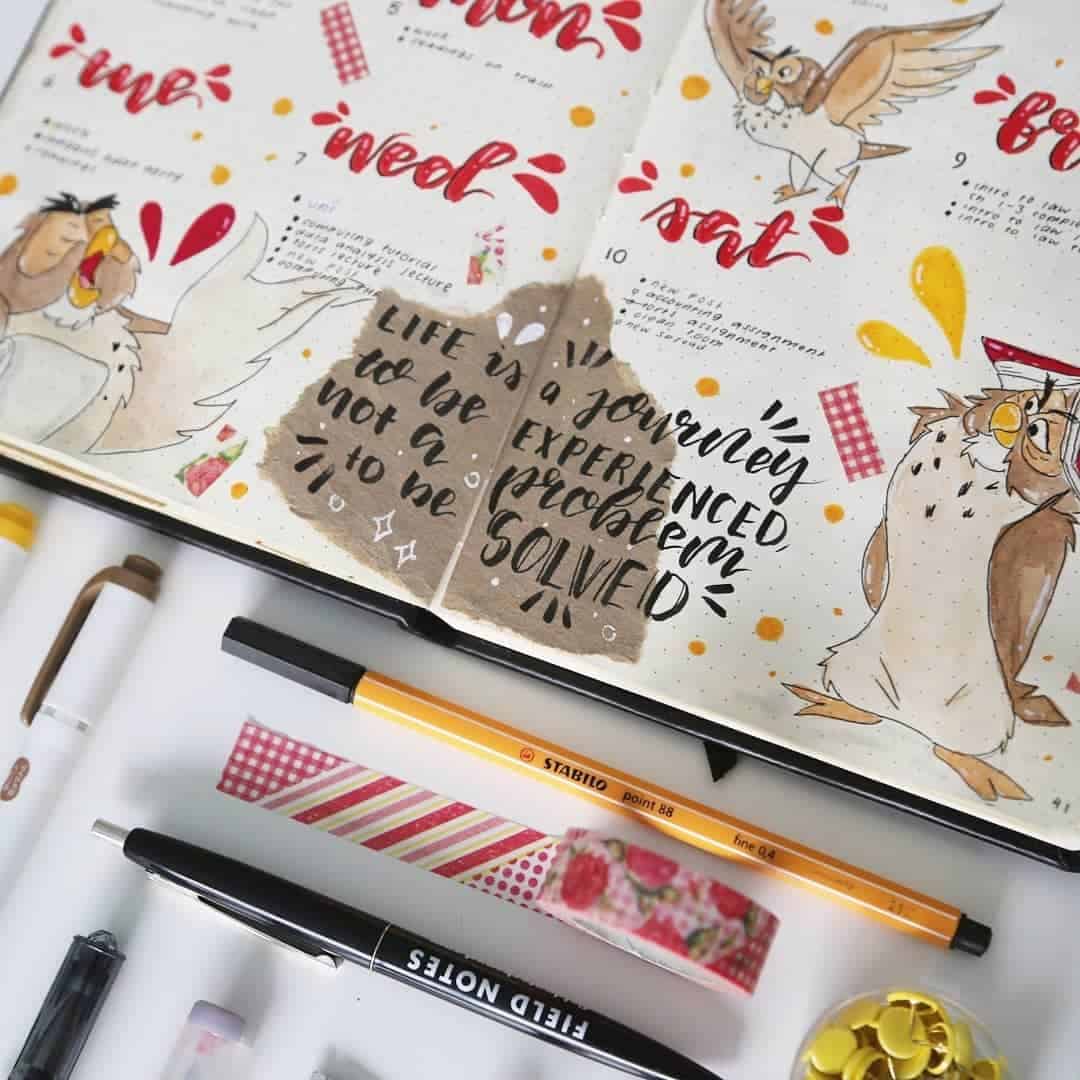 5
mon
• work
• readings on train
6
tue
• work
7
wed
• uni
• computing tutorial
• data analysis lecture
• torts lecture
• new post
10
sat
• new post
• accounting assignment
→ torts assignment
• clean room
• new spread
9
• intro to law
ch 1-3 comple
• intro to law
• intro to law r
LIFE is a journey
to be EXPERIENCED,
not a problem
to be SOLVED
41
STABILO point 88 fine 0,4
FIELD NOTES